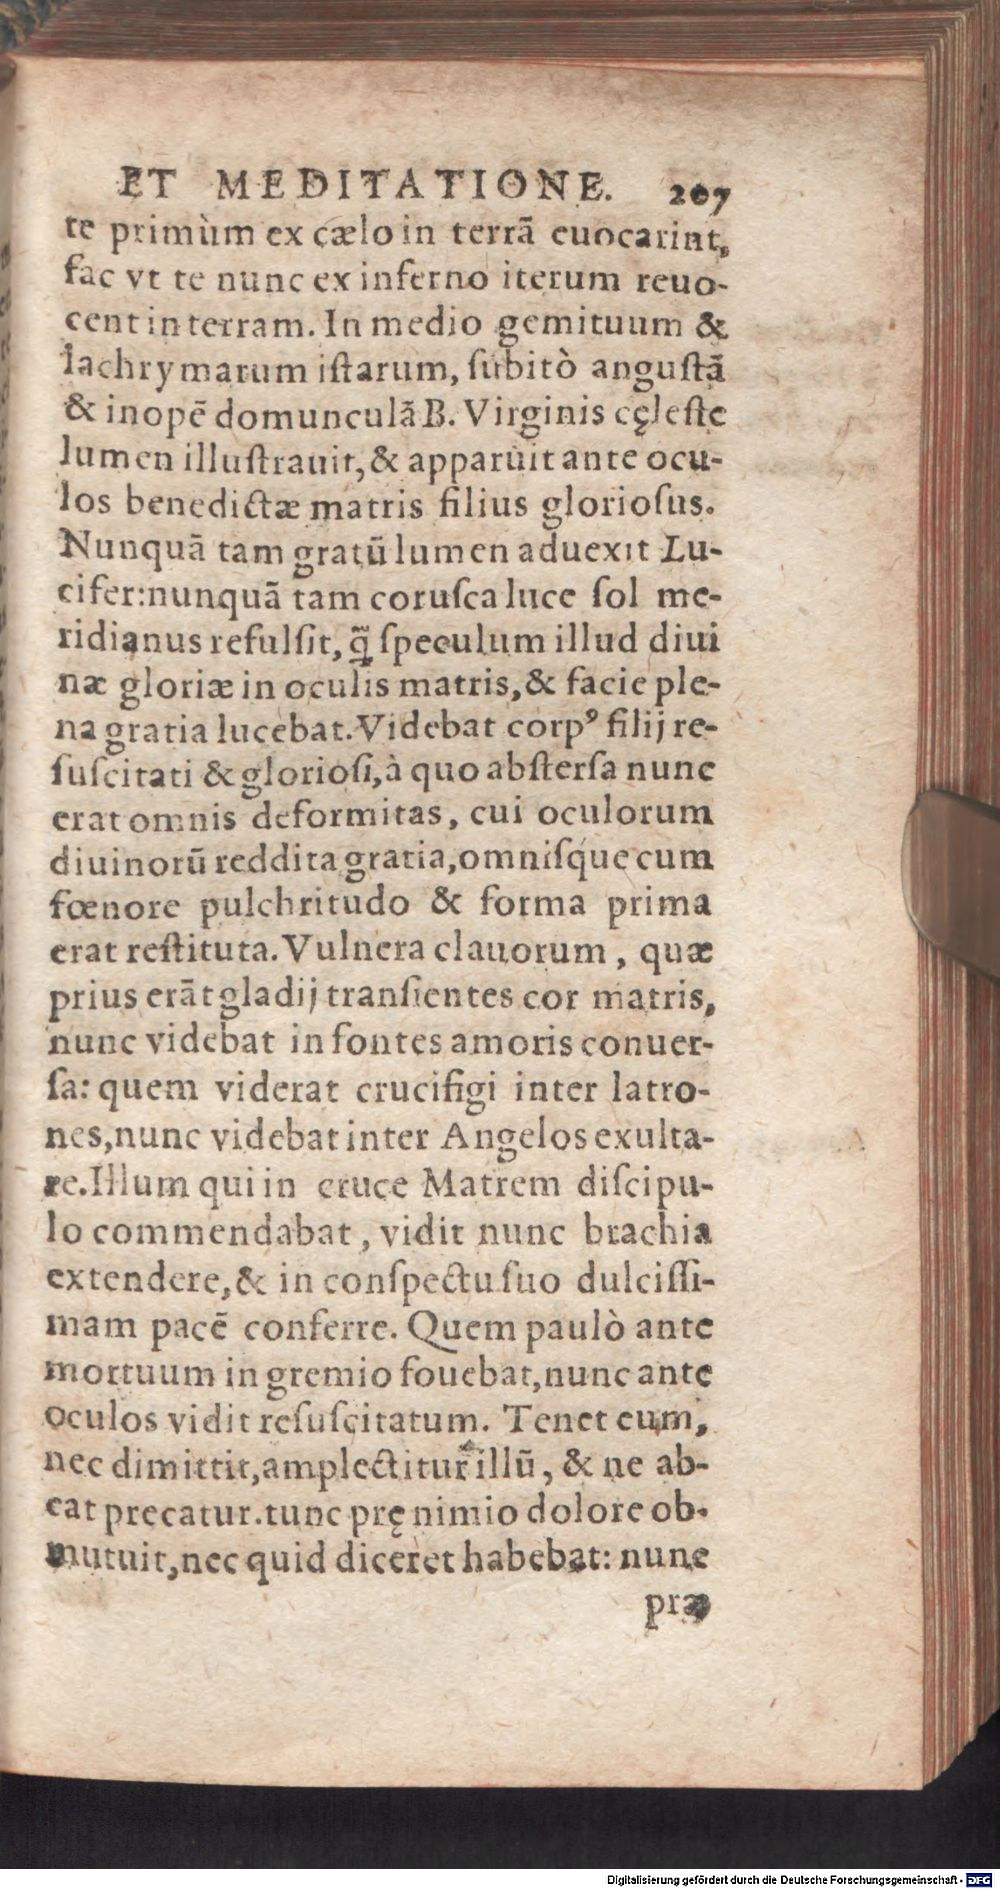 ET MEDITATIONE. 207
te primùm ex cælo in terrã euocarint,
fac vt te nunc ex inferno iterum reuo-
cent in terram. In medio gemituum &
lachrymarum iſtarum, ſubitò anguſtã
& inopẽ domunculã B. Virginis cęleſte
lumen illuſtrauit, & apparuit ante ocu-
los benedictæ matris filius glorioſus.
Nunquã tam gratũ lumen aduexit Lu-
cifer: nunquã tam coruſca luce ſol me-
ridianus refulſit, q̃ ſpeculum illud diui
næ gloriæ in oculis matris, & facie ple-
na gratia lucebat. Videbat corpꝰ filij re-
ſuſcitati & glorioſi, à quo abſterſa nunc
erat omnis deformitas, cui oculorum
diuinorũ reddita gratia, omniſque cum
fœnore pulchritudo & forma prima
erat reſtituta. Vulnera clauorum, quæ
prius erãt gladij tranſientes cor matris,
nunc videbat in fontes amoris conuer-
ſa: quem viderat crucifigi inter latro-
nes, nunc videbat inter Angelos exulta-
re. Illum qui in cruce Matrem diſcipu-
lo commendabat, vidit nunc brachia
extendere, & in conſpectu ſuo dulciſſi-
mam pacẽ conferre. Quem paulò ante
mortuum in gremio fouebat, nunc ante
oculos vidit reſuſcitatum. Tenet eum,
nec dimittit, amplectitur illũ, & ne ab-
eat precatur. tunc prę nimio dolore ob-
mutuit, nec quid diceret habebat: nunc
præ
Digitalisierung gefördert durch die Deutsche Forschungsgemeinschaft - DFG